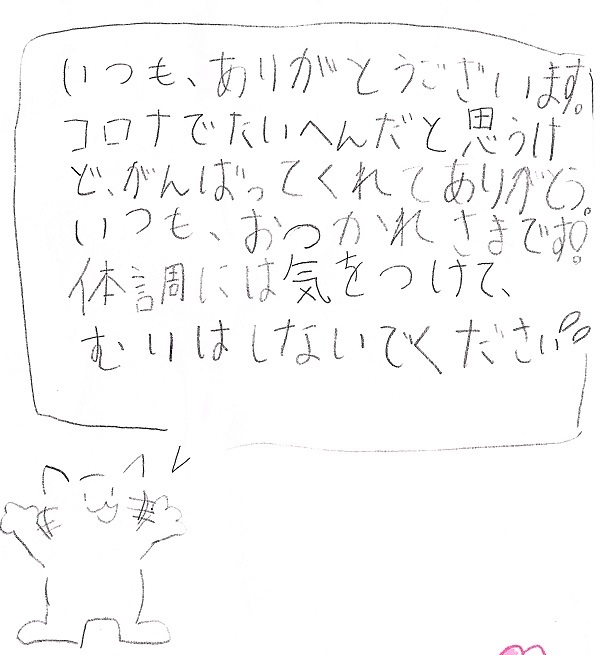 いつも、ありがとうございます。
コロナでたいへんだと思うけ
ど、がんばってくれてありがとう。
いつも、おつかれさまです!
体調には気をつけて、
むりはしないでください!!